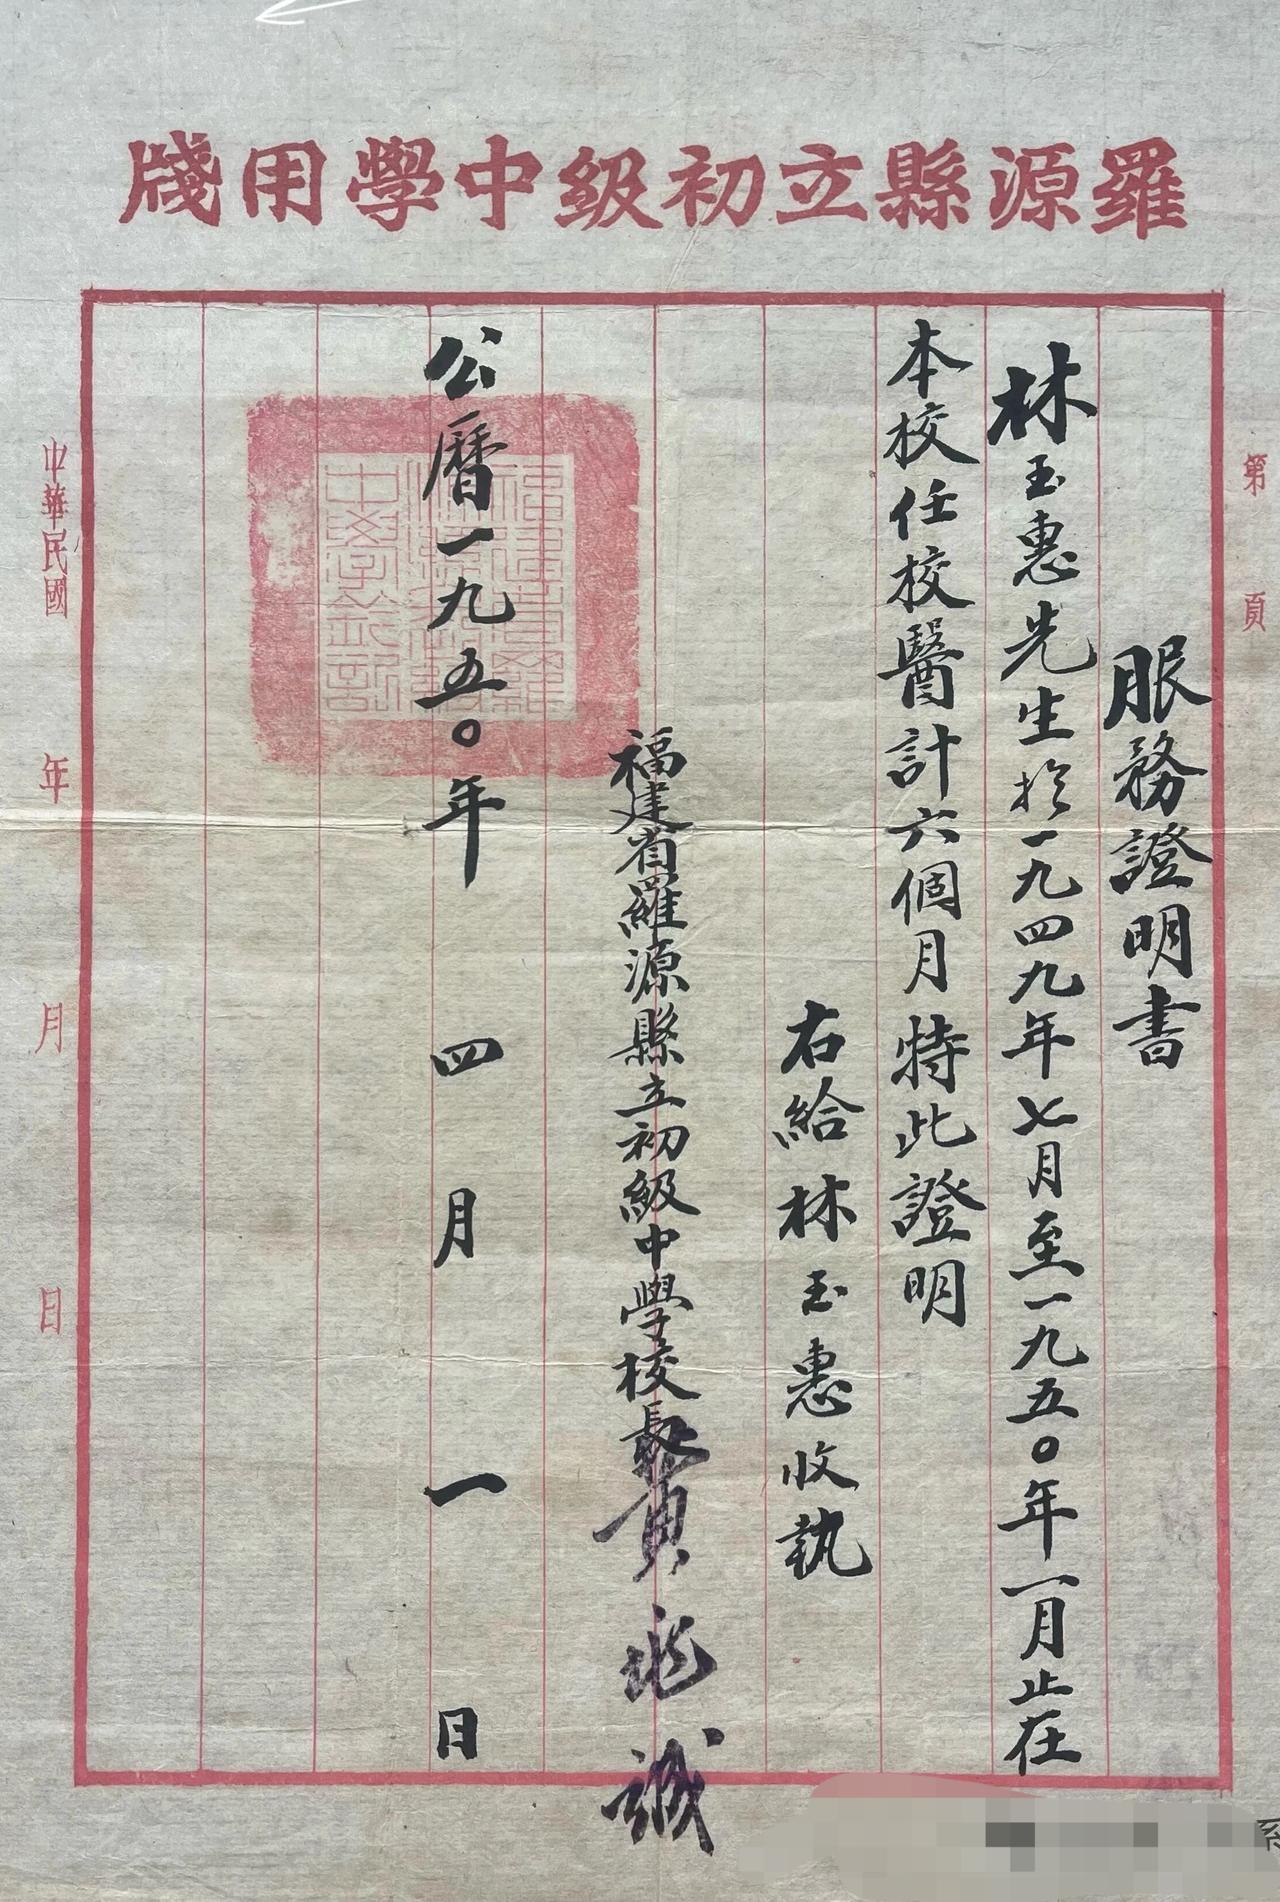 羅源縣立初級中學用牋
第 頁
服務證明書
林玉惠先生於一九四九年七月至一九五〇年一月止在
本校任校醫計六個月特此證明
右給林玉惠收執
福建省羅源縣立初級中學校長黃兆誠
公曆一九五〇年四月一日
福建省羅
源縣初級
中學鈐記
中華民國 年 月 日